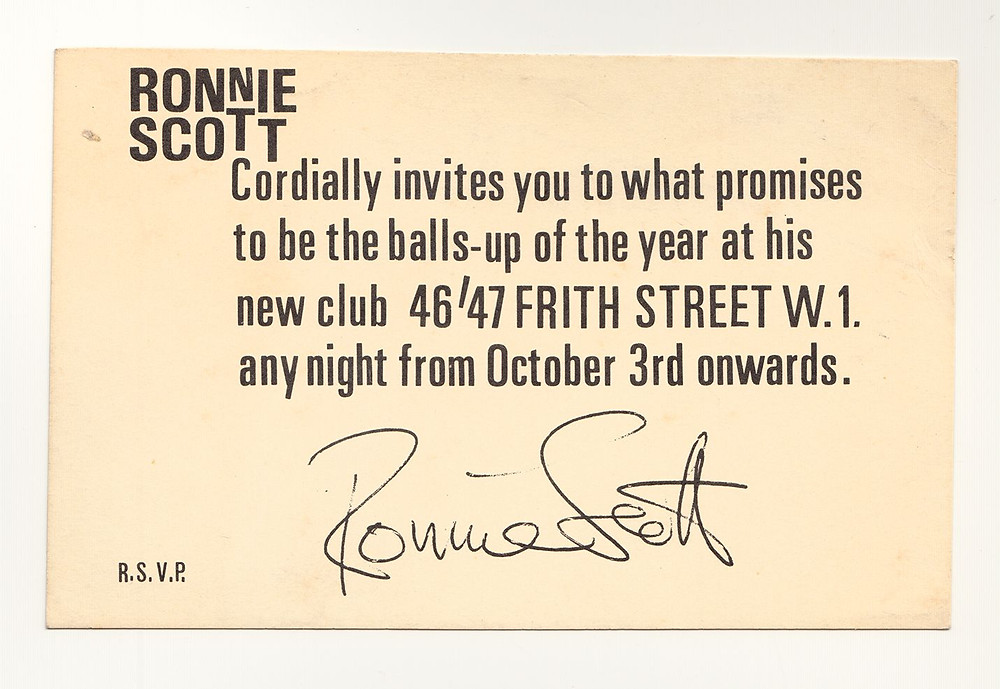 RONNIE
SCOTT
Cordially invites you to what promises
to be the balls-up of the year at his
new club 46/47 FRITH STREET W.1.
any night from October 3rd onwards.
Ronnie Scott
R.S.V.P.